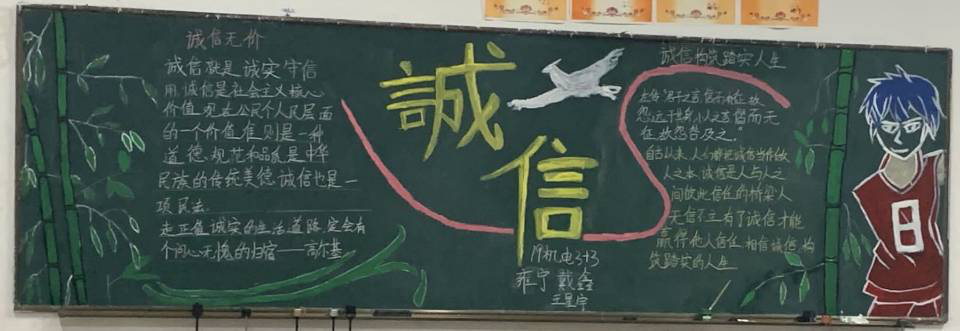 诚信无价
诚信就是诚实守信
用,诚信是社会主义核心
价值观在公民个人民层面
的一个价值准则是一种
道德、规范和品质是中华
民族的传统美德诚信也是一
项民法
走正值诚实的生活道路,定会有
个问心无愧的归宿——高尔基
誠
信
19机电3+3
雍宁 戴鑫
诚信构筑踏实人生
左传"君子之言,信而有征,故
怨远于其身,小人之言僭而无
征,故怨咎及之。"
自古以来,人们都把诚信当作做
人之本,诚信是人与人之
间彼此信任的桥梁人
无信不立有了诚信才能
赢得他人信任,相信诚信构
筑踏实的人生
8